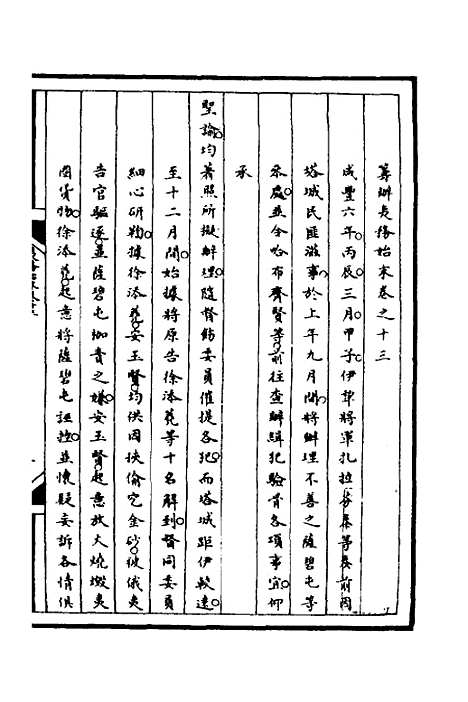 籌辦夷務始末卷之十三
咸豐六年丙辰三月甲子伊犂將軍扎拉芬泰等奏前因
塔城民匪滋事於上年九月間將辦理不善之薩碧屯等
參處並令哈布齊賢等前往查辦緝犯驗貨各項事宜仰
承
聖諭均著照所擬辦理隨督飭委員催提各犯而塔城距伊較遠
至十二月間始據將原告徐添堯等十名解到督同委員
細心研鞫據徐添堯安玉賢均供因挾偷挖金砂被俄夷
告官驅逐並薩碧屯枷責之嫌安玉賢起意放火燒燬夷
圈貨物徐添堯起意將薩碧屯誣控並懷疑妄訴各情俱